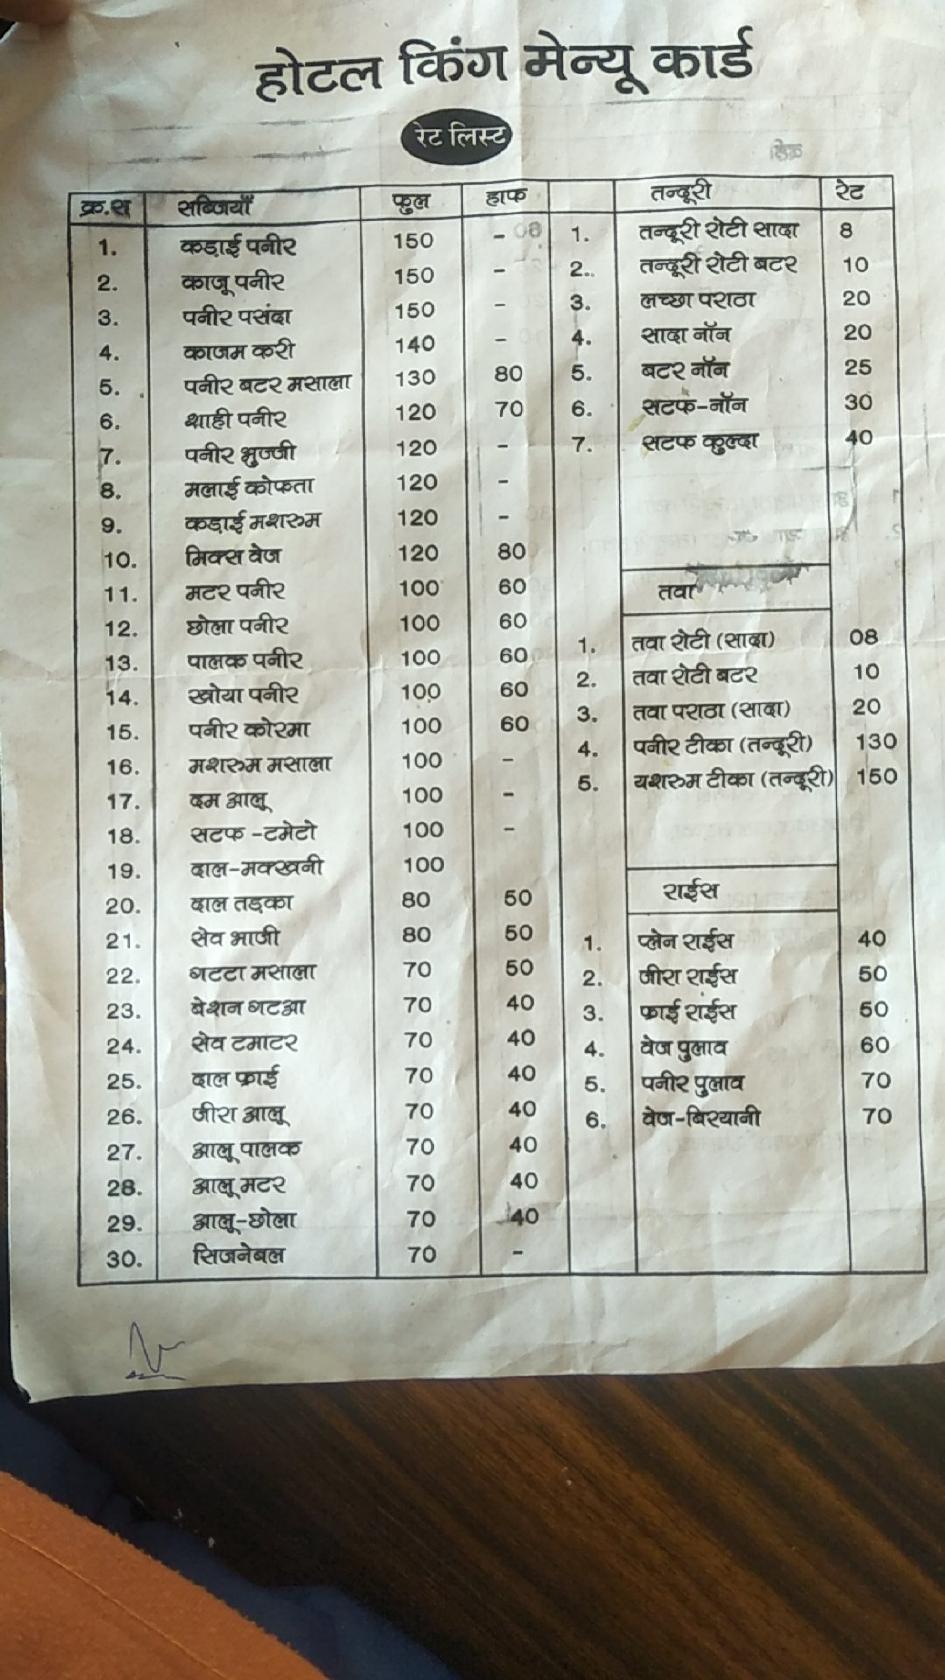 होटल किंग मेन्यू कार्ड
रेट लिस्ट
क्र.स सब्जियाँ फुल हाफ
1. कडा़ई पनीर 150 -
2. काजू पनीर 150 -
3. पनीर पसंदा 150 -
4. काजम करी 140 -
5. पनीर बटर मसाला 130 80
6. शाही पनीर 120 70
7. पनीर भुज्जी 120 -
8. मलाई कोफता 120 -
9. कडा़ई मशरुम 120 -
10. मिक्स वेज 120 80
11. मटर पनीर 100 60
12. छोला पनीर 100 60
13. पालक पनीर 100 60
14. खोया पनीर 100 60
15. पनीर कोरमा 100 60
16. मशरुम मसाला 100 -
17. दम आलू 100 -
18. सटफ -टमेटो 100 -
19. दाल-मक्खनी 100
20. दाल तड़का 80 50
21. सेव भाजी 80 50
22. गटटा मसाला 70 50
23. बेशन गटआ 70 40
24. सेव टमाटर 70 40
25. दाल फ्राई 70 40
26. जीरा आलू 70 40
27. आलू पालक 70 40
28. आलू मटर 70 40
29. आलू-छोला 70 40
30. सिजनेबल 70 -
तन्दूरी रेट
1. तन्दूरी रोटी सादा 8
2. तन्दूरी रोटी बटर 10
3. लच्छा पराठा 20
4. सादा नॉन 20
5. बटर नॉन 25
6. सटफ-नॉन 30
7. सटफ कुल्दा 40
तवा
1. तवा रोटी (सादा) 08
2. तवा रोटी बटर 10
3. तवा पराठा (सादा) 20
4. पनीर टीका (तन्दूरी) 130
5. यशरुम टीका (तन्दूरी) 150
राईस
1. प्लेन राईस 40
2. जीरा राईस 50
3. फ्राई राईस 50
4. वेज पुलाव 60
5. पनीर पुलाव 70
6. वेज-बिरयानी 70